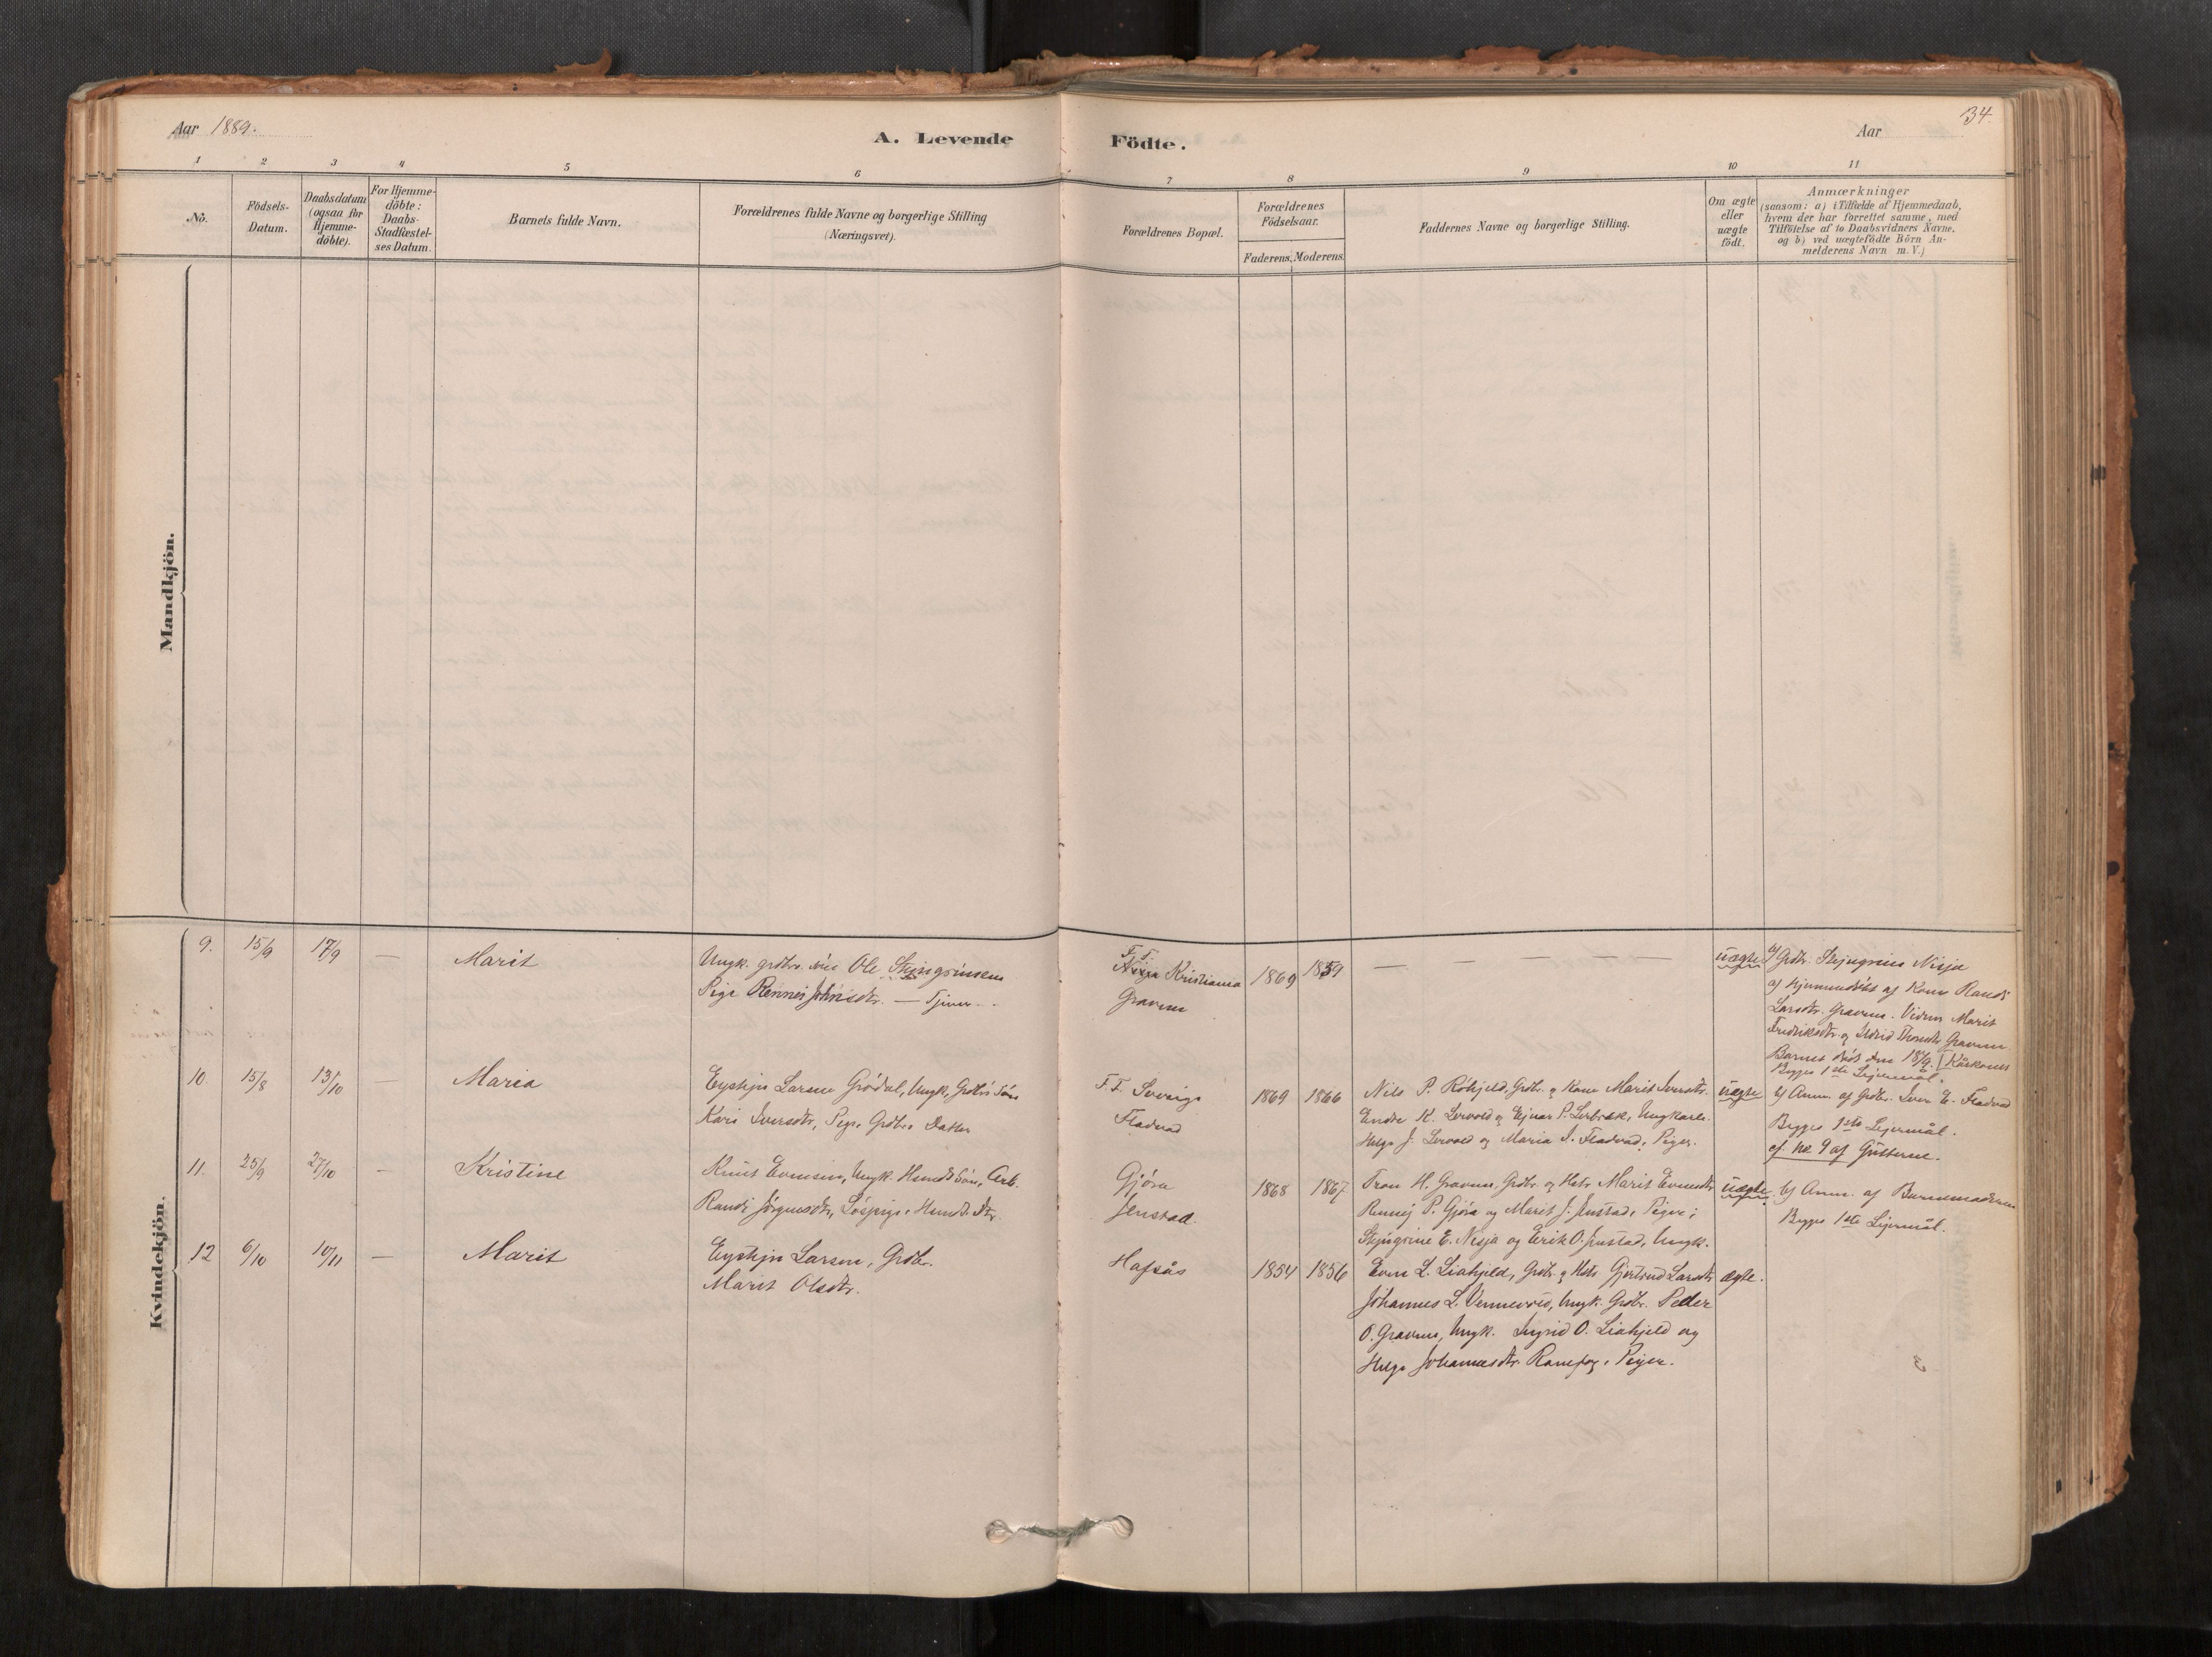 Aar 1889.
A. Levende
Födte.
Aar
34.
1 2 3 4 5 6 7 8 9 10 11
No.
Födsels-
Datum.
Daabsdatum
(ogsaa for
Hjemme-
döbte).
For Hjemme-
döbte:
Daabs-
Stadfæstel-
ses Datum.
Barnets fulde Navn.
Forældrenes fulde Navne og borgerlige Stilling
(Næringsvei).
Forældrenes Bopæl.
Forældrenes
Födselsaar.
Faderens. Moderens.
Faddernes Navne og borgerlige Stilling.
Om ægte
eller
uægte
födt.
Anmærkninger
(saasom: a) i Tilfælde af Hjemmedaab,
hvem der har forrettet samme, med
Tilföielse af to Daabsvidners Navne,
og b) ved uægtefödte Börn An-
melderens Navn m. V.)
Mandkjön.
Kvindekjön.
9. 15/9 17/9 — Marit
Ungk. grdbr. Ole Stejngrimsen
Pige Rønnei Johnsdtr. — Tjener
F. F.
Kristiania
Gravem
1869 1859
— — — — — —
uægte
b) Grdbr. Stejngrim Nisja
a) hjemmedöbt af Kone Randi
Larsdtr. Gravem. Vidner Marit
Fredriksdtr. og Gravem.
Barnet död den 18/9. [Kårkoner
Begges 1ste Lejermål.
10 15/8 13/10 — Maria
Eystejn Larsen Grödal, Ungk., Grdbr. Sön
Kari Iversdtr., Pige, Grdbrs Datter
F. F. Sverige
Fladvad
1869 1866
Nils P. Röhjeld, Grdbr. og Kone Marit Iversdtr.
Endre K. Lervold og Ejnar P. Ungkarle.
Helga J. Lervold og Maria I. Fladvad, Piger.
uægte
b) Anm. af Grdbr. Iver E. Fladvad
Begges 1ste Lejermål.
cf. No 9 af Gutterne.
11. 25/9 27/10 — Kristine
Knut Evensen, Ungk. Husmds Sön, Arb.
Randi Jörgensdtr., Löspige, Husmds. Dtr.
Gjöra
Jenstad.
1868 1867
Tron H. Gravem, Grdbr. og Hstr. Marit Evensdtr.
P. Gjöra og Marit J. Jenstad, Piger;
Stejngrim E. Nisja og Erik O. Jenstad, Ungk.
uægte.
b) Anm. af Barnemoderen
Begges 1ste Lejermål.
12 6/10 10/11 — Marit
Eystejn Larsen, Grdbr.
Marit Olsdtr.
Hafsås
1854 1856
Even L. Liahjeld, Grdbr. og Hstr. Gjertrud Larsdtr
Johannes L. Vennevold, Ungk. Grdbr. Peder
O. Gravem, Ungk. Ingrid O. Liahjeld og
Helga Johannesdtr. Piger.
ægte.